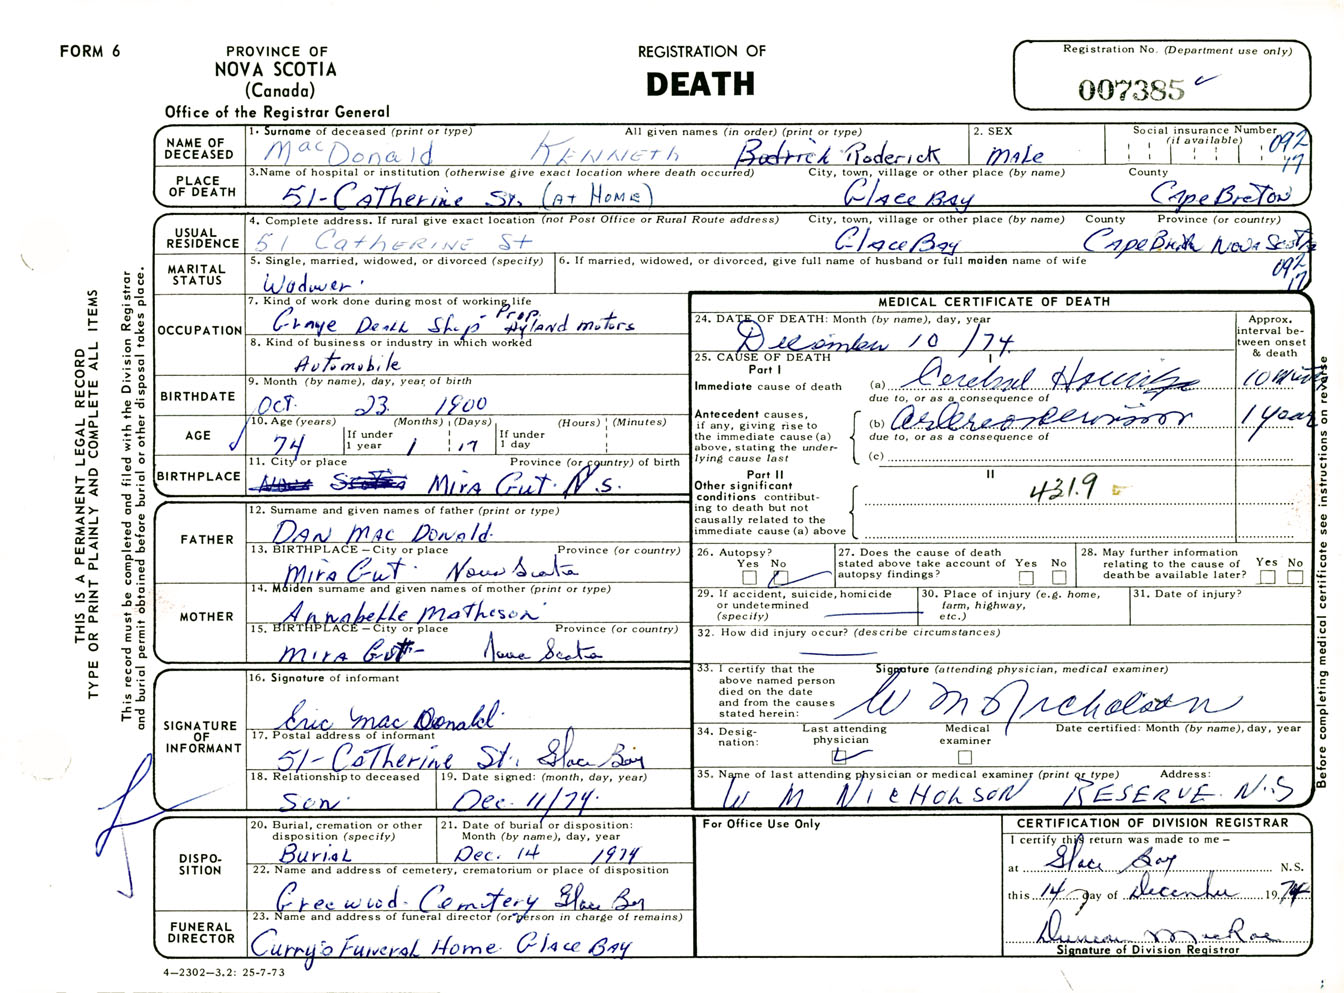 FORM 6
PROVINCE OF
NOVA SCOTIA
(Canada)
Office of the Registrar General
REGISTRATION OF
DEATH
Registration No. (Department use only)
007385
NAME OF DECEASED
1. Surname of deceased (print or type) All given names (in order) (print or type)
MacDonald KENNETH Roderick
2. SEX
MALE
Social insurance Number (if available)
092
17
PLACE OF DEATH
3. Name of hospital or institution (otherwise give exact location where death occurred) City, town, village or other place (by name) County
51- Catherine St. (AT HOME) Glace Bay Cape Breton
USUAL RESIDENCE
4. Complete address. If rural give exact location (not Post Office or Rural Route address) City, town, village or other place (by name) County Province (or country)
51 CATHERINE St Glace Bay Cape Breton Nova Scotia
092
17
MARITAL STATUS
5. Single, married, widowed, or divorced (specify)
Widower.
6. If married, widowed, or divorced, give full name of husband or full maiden name of wife
OCCUPATION
7. Kind of work done during most of working life
Prop. Hyland Motors
8. Kind of business or industry in which worked
Automobile
BIRTHDATE
9. Month (by name), day, year of birth
Oct. 23. 1900
AGE
10. Age (years) (Months) (Days) (Hours) (Minutes)
If under 1 year
If under 1 day
74 1 17
BIRTHPLACE
11. City or place Province (or country) of birth
Mira Gut. N.S.
FATHER
12. Surname and given names of father (print or type)
DAN MAC DONALD.
13. BIRTHPLACE – City or place Province (or country)
Mira Gut. Nova Scotia
MOTHER
14. Maiden surname and given names of mother (print or type)
Annabelle Matheson
15. BIRTHPLACE – City or place Province (or country)
Mira Gut- Nova Scotia
SIGNATURE OF INFORMANT
16. Signature of informant
Eric Mac Donald.
17. Postal address of informant
51- Catherine St., Glace Bay
18. Relationship to deceased
Son.
19. Date signed: (month, day, year)
Dec. 11/74.
DISPO-
SITION
20. Burial, cremation or other disposition (specify)
Burial
21. Date of burial or disposition: Month (by name), day, year
Dec. 14 1974
22. Name and address of cemetery, crematorium or place of disposition
Greenwood. Cemetery Glace Bay
FUNERAL DIRECTOR
23. Name and address of funeral director (or person in charge of remains)
Curry's Funeral Home. Glace Bay
4—2302—3.2: 25-7-73
MEDICAL CERTIFICATE OF DEATH
24. DATE OF DEATH: Month (by name), day, year
December 10/74.
Approx. interval be-
tween onset & death
25. CAUSE OF DEATH
Part I
I
Immediate cause of death
(a) Cerebral
10 mins
due to, or as a consequence of
Antecedent causes, if any, giving rise to the immediate cause (a) above, stating the under-
lying cause last
(b)
1 year
due to, or as a consequence of
(c)
Part II
II
Other significant conditions contribut-
ing to death but not causally related to the immediate cause (a) above
431.9
26. Autopsy?
Yes No
27. Does the cause of death stated above take account of autopsy findings?
Yes No
28. May further information relating to the cause of death be available later?
Yes No
29. If accident, suicide, homicide or undetermined (specify)
30. Place of injury (e.g. home, farm, highway, etc.)
31. Date of injury?
32. How did injury occur? (describe circumstances)
33. I certify that the above named person died on the date and from the causes stated herein:
Signature (attending physician, medical examiner)
W M Nicholson
34. Desig-
nation:
Last attending physician
Medical examiner
Date certified: Month (by name), day, year
35. Name of last attending physician or medical examiner (print or type) Address:
W M NICHOLSON RESERVE. N.S
For Office Use Only
CERTIFICATION OF DIVISION REGISTRAR
I certify this return was made to me –
at Glace Bay N.S.
this 14 day of December 1974
Duncan MacRae
Signature of Division Registrar
THIS IS A PERMANENT LEGAL RECORD
TYPE OR PRINT PLAINLY AND COMPLETE ALL ITEMS
This record must be completed and filed with the Division Registrar
and burial permit obtained before burial or other disposal takes place.
Before completing medical certificate see instructions on reverse